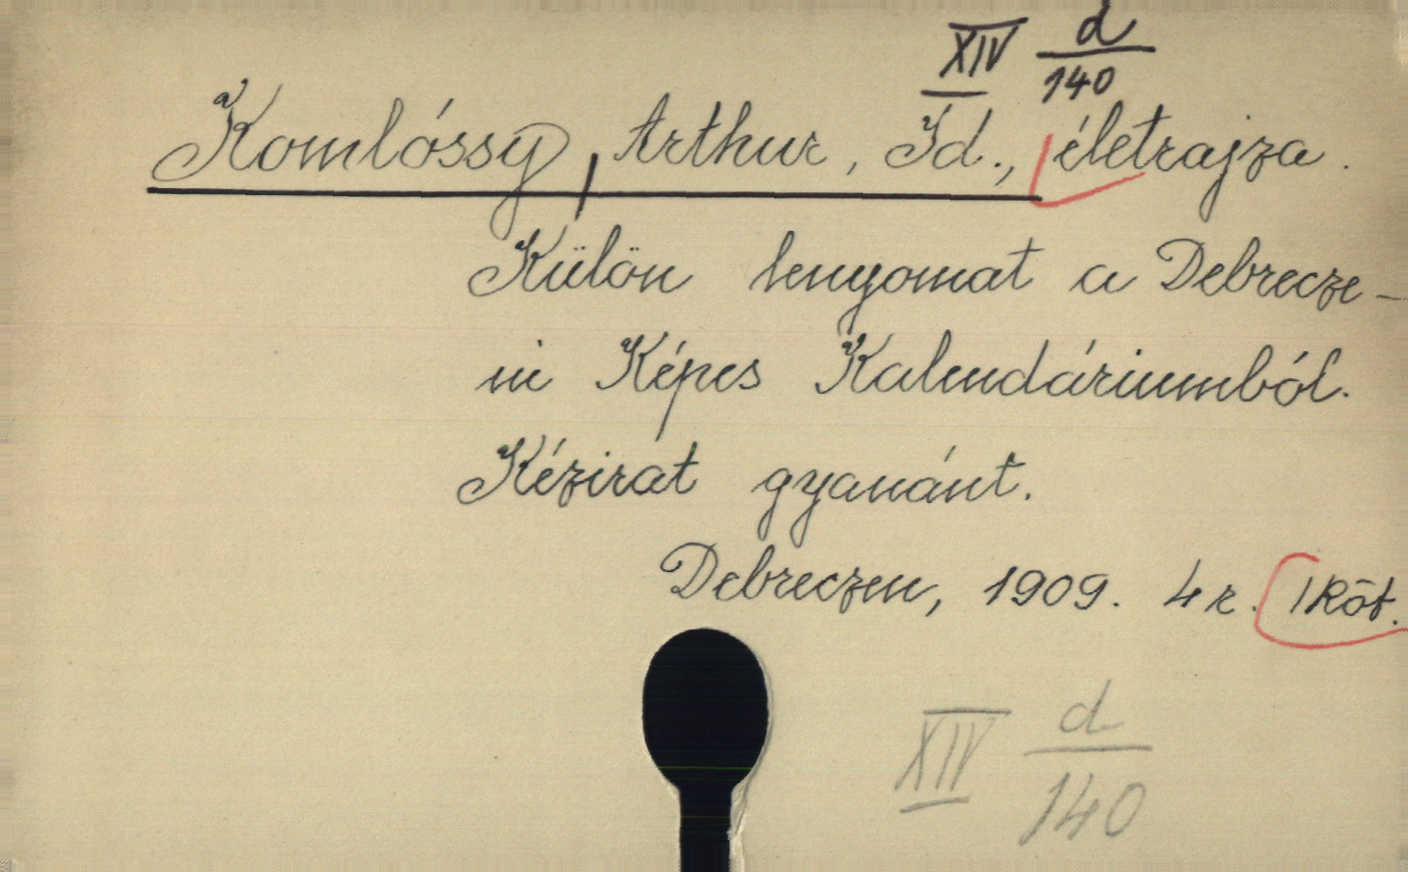 XIV d/140
Komlóssy, Arthur, Id., életrajza.
Külön lenyomat a Debrecze-
ni Képes Kalendáriumból.
Kézirat gyanánt.
Debreczen, 1909. 4r. 1 Köt.
XIV d/140